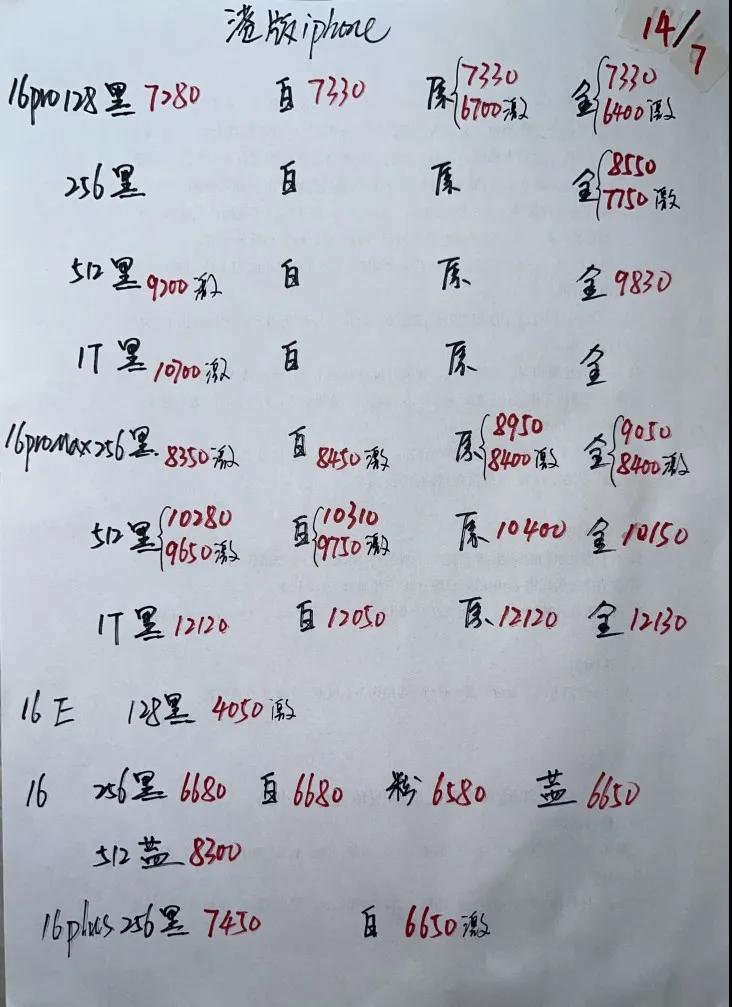 港版iphone
14/7
16pro 128黑 7280 白 7330 原{7330 6700激 金{7330 6400激
256黑 白 原 金{8550 7750激
512黑 9200激 白 原 金 9830
1T 黑 10700激 白 原 金
16promax 256黑 8350激 白 8450激 原{8950 8400激 金{9050 8400激
512黑{10280 9650激 白{10310 9750激 原 10400 金 10150
1T 黑 12120 白 12050 原 12120 金 12130
16E 128黑 4050激
16 256黑 6680 白 6680 粉 6580 蓝 6650
512蓝 8300
16plus 256黑 7450 白 6650激